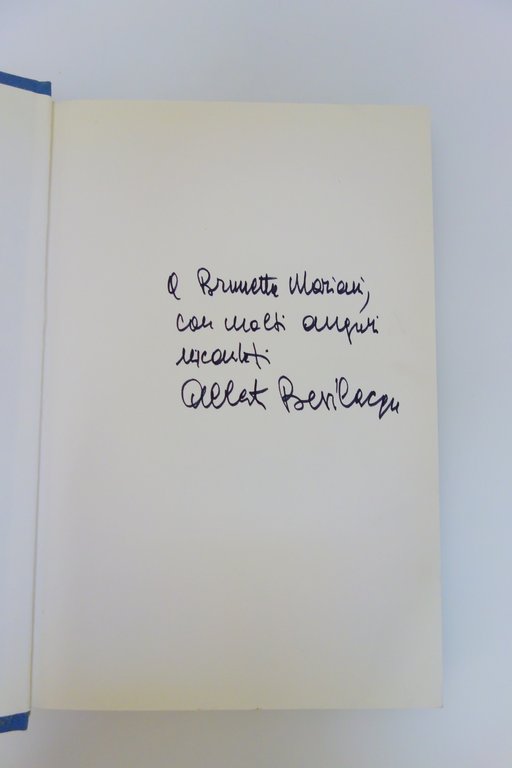 a Brunetta Mariani,
con molti auguri
Alberto Bevilacqua